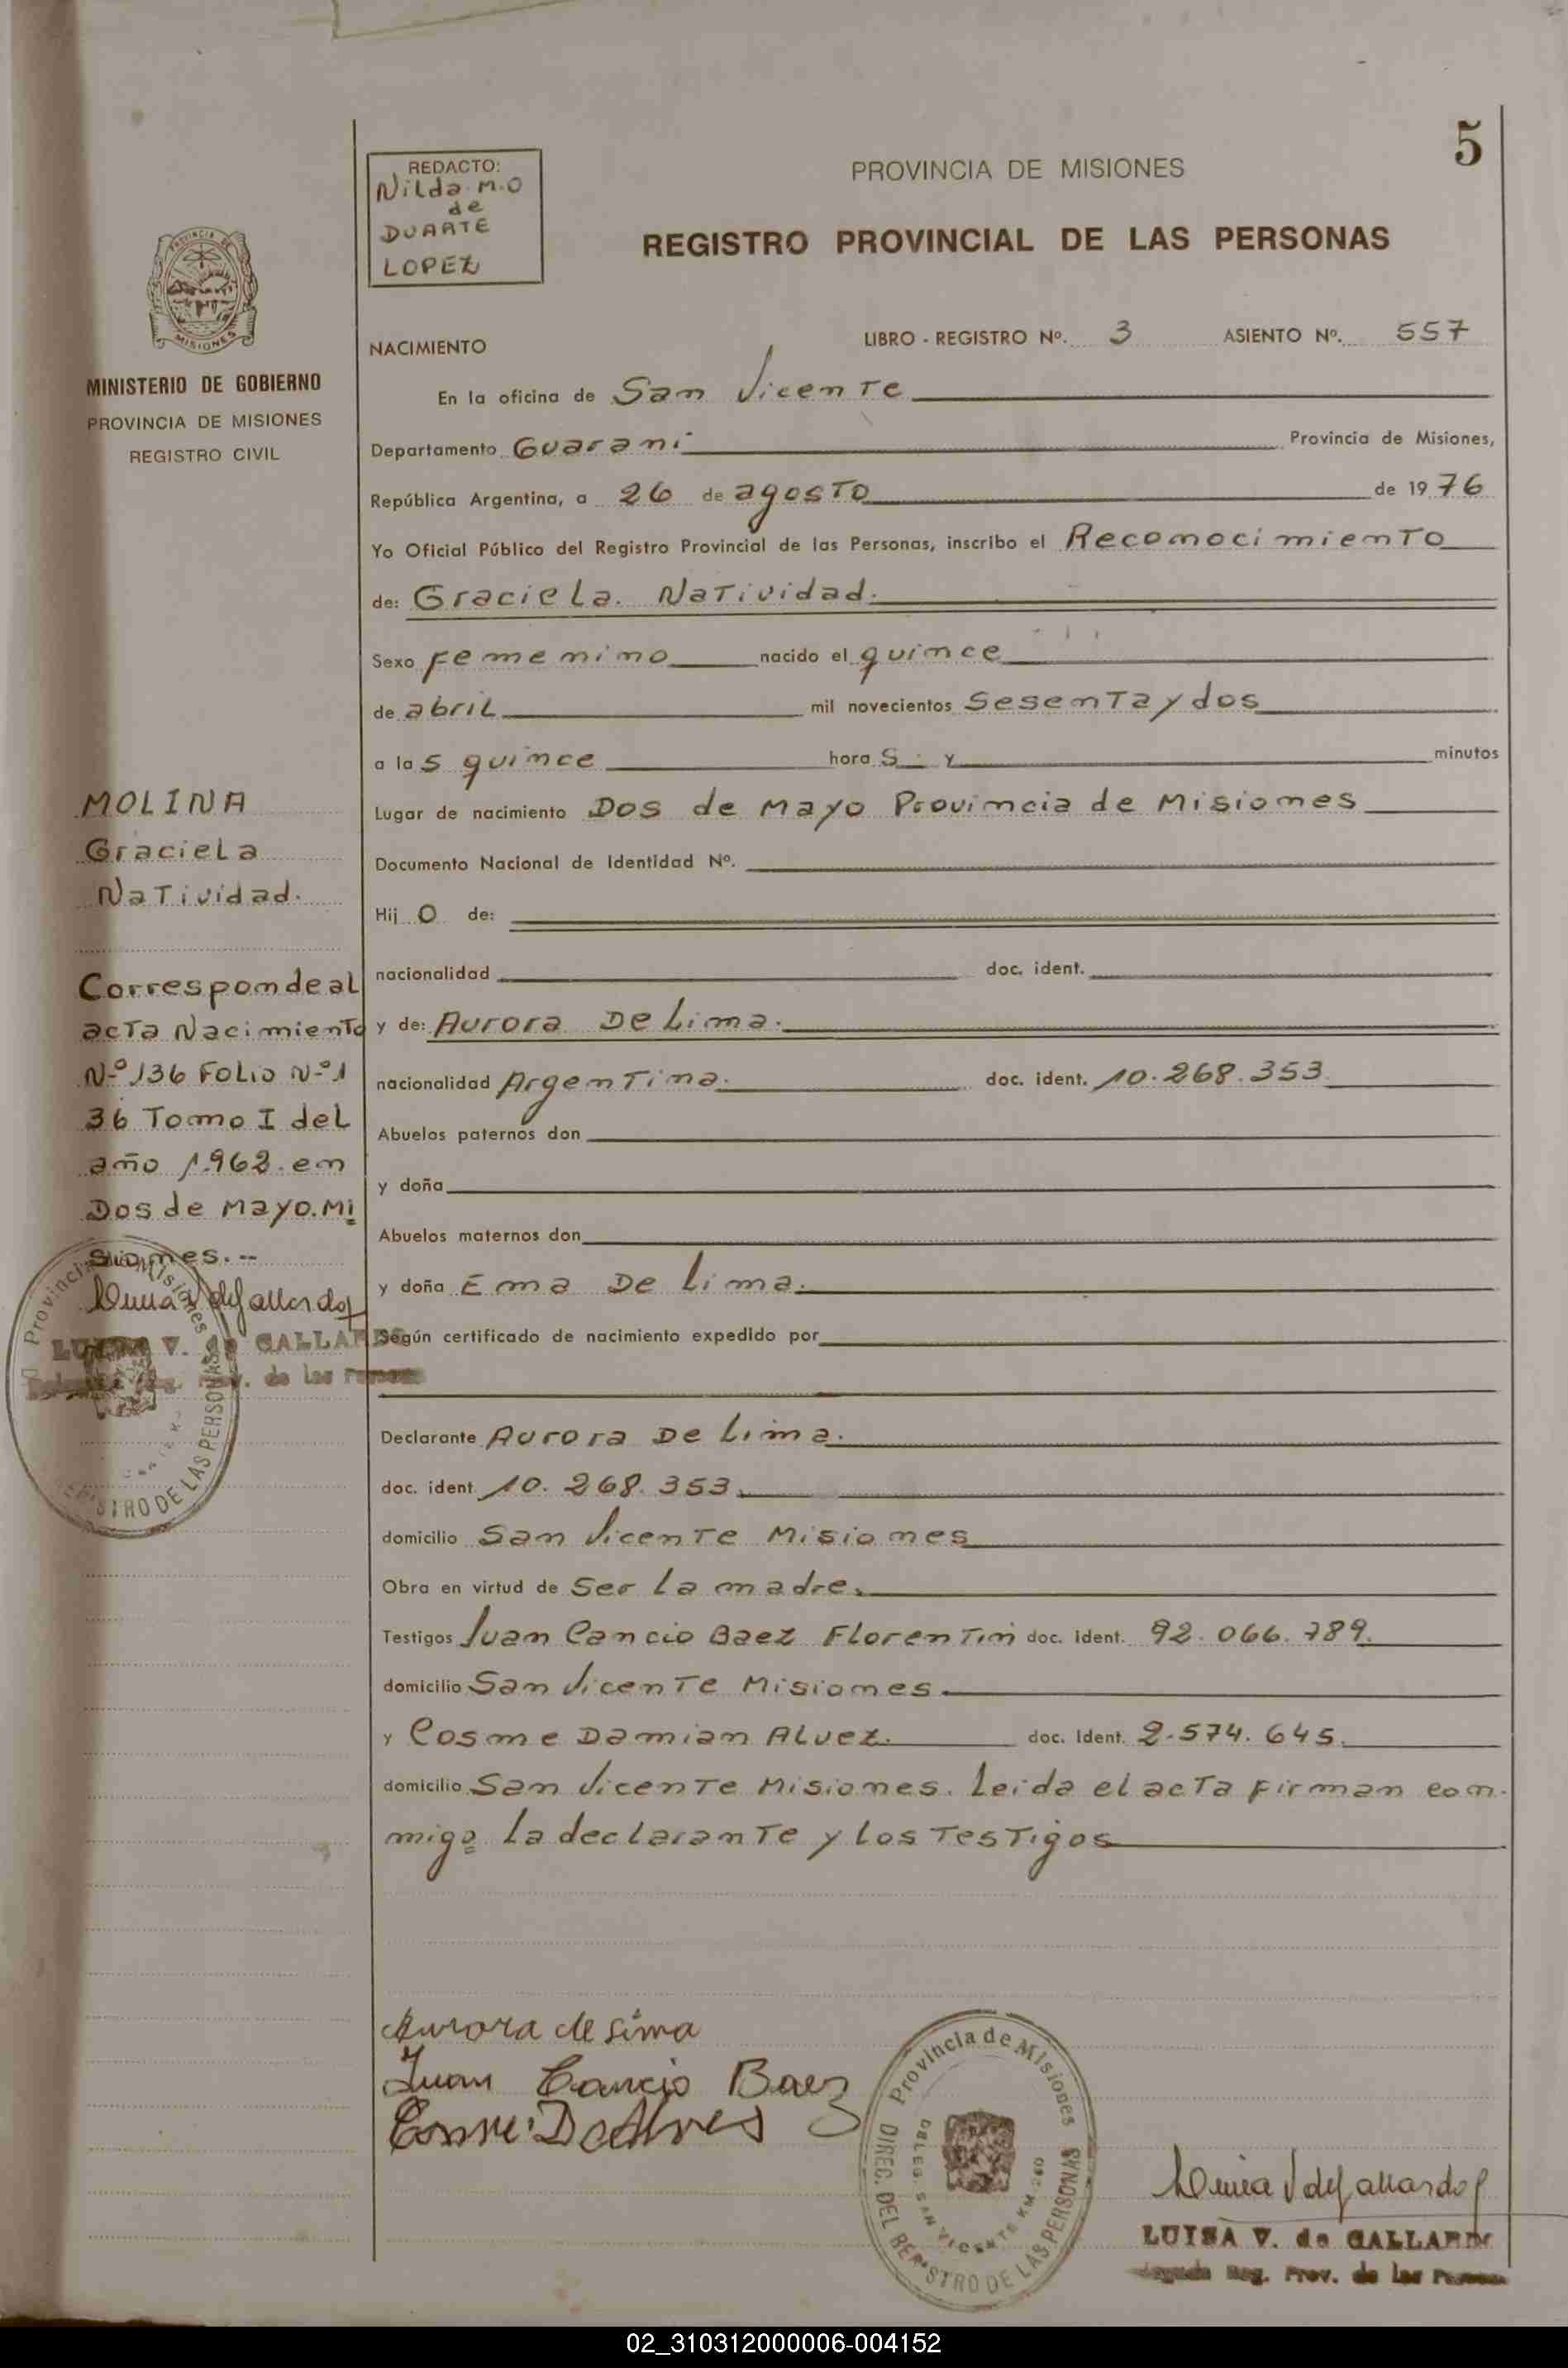 5
REDACTO:
Nilda M.O
de
DUARTE
LOPEZ
PROVINCIA DE MISIONES
REGISTRO PROVINCIAL DE LAS PERSONAS
PROVINCIA DE
MISIONES
MINISTERIO DE GOBIERNO
PROVINCIA DE MISIONES
REGISTRO CIVIL
NACIMIENTO
LIBRO - REGISTRO Nº. 3 ASIENTO Nº. 557
En la oficina de San Vicente
Departamento Guarani Provincia de Misiones,
República Argentina, a 26 de agosto de 1976
Yo Oficial Público del Registro Provincial de las Personas, inscribo el Reconocimiento
de: Graciela. Natividad.
Sexo femenino nacido el quince
de abril mil novecientos sesenta y dos
a las quince horas y minutos
Lugar de nacimiento Dos de Mayo Provincia de Misiones
Documento Nacional de Identidad Nº.
Hijo de:
nacionalidad doc. ident.
y de: Aurora De Lima.
nacionalidad Argentina. doc. ident. 10.268.353.
Abuelos paternos don
y doña
Abuelos maternos don
y doña Ema De Lima.
Según certificado de nacimiento expedido por
Declarante Aurora De Lima.
doc. ident. 10.268.353.
domicilio San Vicente Misiones
Obra en virtud de ser la madre.
Testigos Juan Cancio Baez Florentin doc. ident. 92.066.789.
domicilio San Vicente Misiones.
y Cosme Damian Alvez. doc. Ident. 2.574.645.
domicilio San Vicente Misiones. Leida el acta firman con-
migo la declarante y los testigos
MOLINA
Graciela
Natividad.
Corresponde al
acta Nacimiento
Nº 136 Folio Nº 1
36 Tomo I del
año 1.962. en
Dos de Mayo. Mi
siones.--
Luisa V de Gallardo
LUISA V. de GALLARDO
Reg. Prov. de las Personas
Provincia de Misiones
REGISTRO DE LAS PERSONAS
Aurora de Lima
Juan Cancio Baez
Cosme D Alves
Provincia de Misiones
DIREC. DEL REGISTRO DE LAS PERSONAS
DELEG. SAN VICENTE KM. 260
Luisa V de Gallardo
LUISA V. de GALLARDO
Reg. Prov. de las Personas
02_310312000006-004152